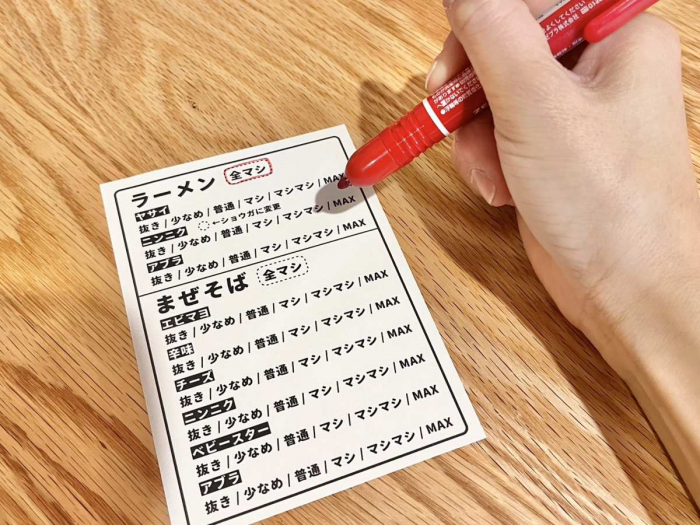 ラーメン 全マシ
ヤサイ
抜き / 少なめ / 普通 / マシ / マシマシ / MAX
ニンニク ←ショウガに変更
抜き / 少なめ / 普通 / マシ / マシマシ / MAX
アブラ
抜き / 少なめ / 普通 / マシ / マシマシ / MAX
まぜそば 全マシ
エビマヨ
抜き / 少なめ / 普通 / マシ / マシマシ / MAX
辛味
抜き / 少なめ / 普通 / マシ / マシマシ / MAX
チーズ
抜き / 少なめ / 普通 / マシ / マシマシ / MAX
ニンニク
抜き / 少なめ / 普通 / マシ / マシマシ / MAX
ベビースター
抜き / 少なめ / 普通 / マシ / マシマシ / MAX
アブラ
抜き / 少なめ / 普通 / マシ / マシマシ / MAX